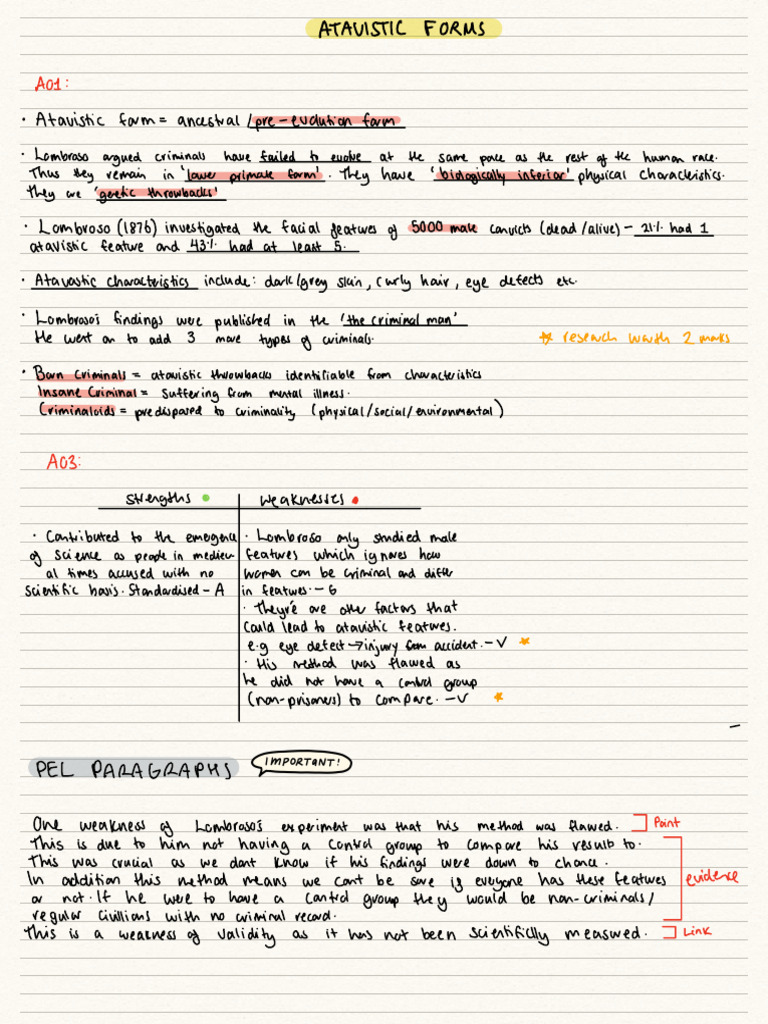 ATAVISTIC FORMS
A01:
· Atavistic form = ancestral / pre-evolution form
· Lombroso argued criminals have failed to evolve at the same pace as the rest of the human race.
Thus they remain in 'lower primate form'. They have 'biologically inferior' physical characteristics.
They are 'genetic throwbacks'
· Lombroso (1876) investigated the facial features of 5000 male convicts (dead/alive) – 21% had 1
atavistic feature and 43% had at least 5.
· Atavastic characteristics include: dark/grey skin, curly hair, eye defects etc.
· Lombroso's findings were published in the 'the criminal man'
He went on to add 3 more types of criminals.
★ research worth 2 marks
· Born Criminals = atavistic throwbacks identifiable from characteristics
Insane Criminal = Suffering from mental illness.
Criminaloids = predisposed to criminality (physical/social/environmental)
A03:
Strengths
Weaknesses
· Contributed to the emegence
of science as people in mediev-
al times accused with no
scientific basis. Standardised – A
· Lombroso only studied male
features which ignores how
women can be criminal and differ
in features. – G
· They're are other factors that
could lead to atavistic features.
e.g eye defect → injury from accident. – V ★
· His method was flawed as
he did not have a control group
(non-prisoners) to compare. – V ★
–
PEL PARAGRAPHS
IMPORTANT!
One weakness of Lombroso's experiment was that his method was flawed.
Point
This is due to him not having a control group to compare his results to.
This was crucial as we dont know if his findings were down to chance.
In addition this method means we cant be sure if everyone has these features
or not. If he were to have a control group they would be non-criminals/
regular civillians with no criminal record.
evidence
This is a weakness of validity as it has not been scientificlly measured.
Link